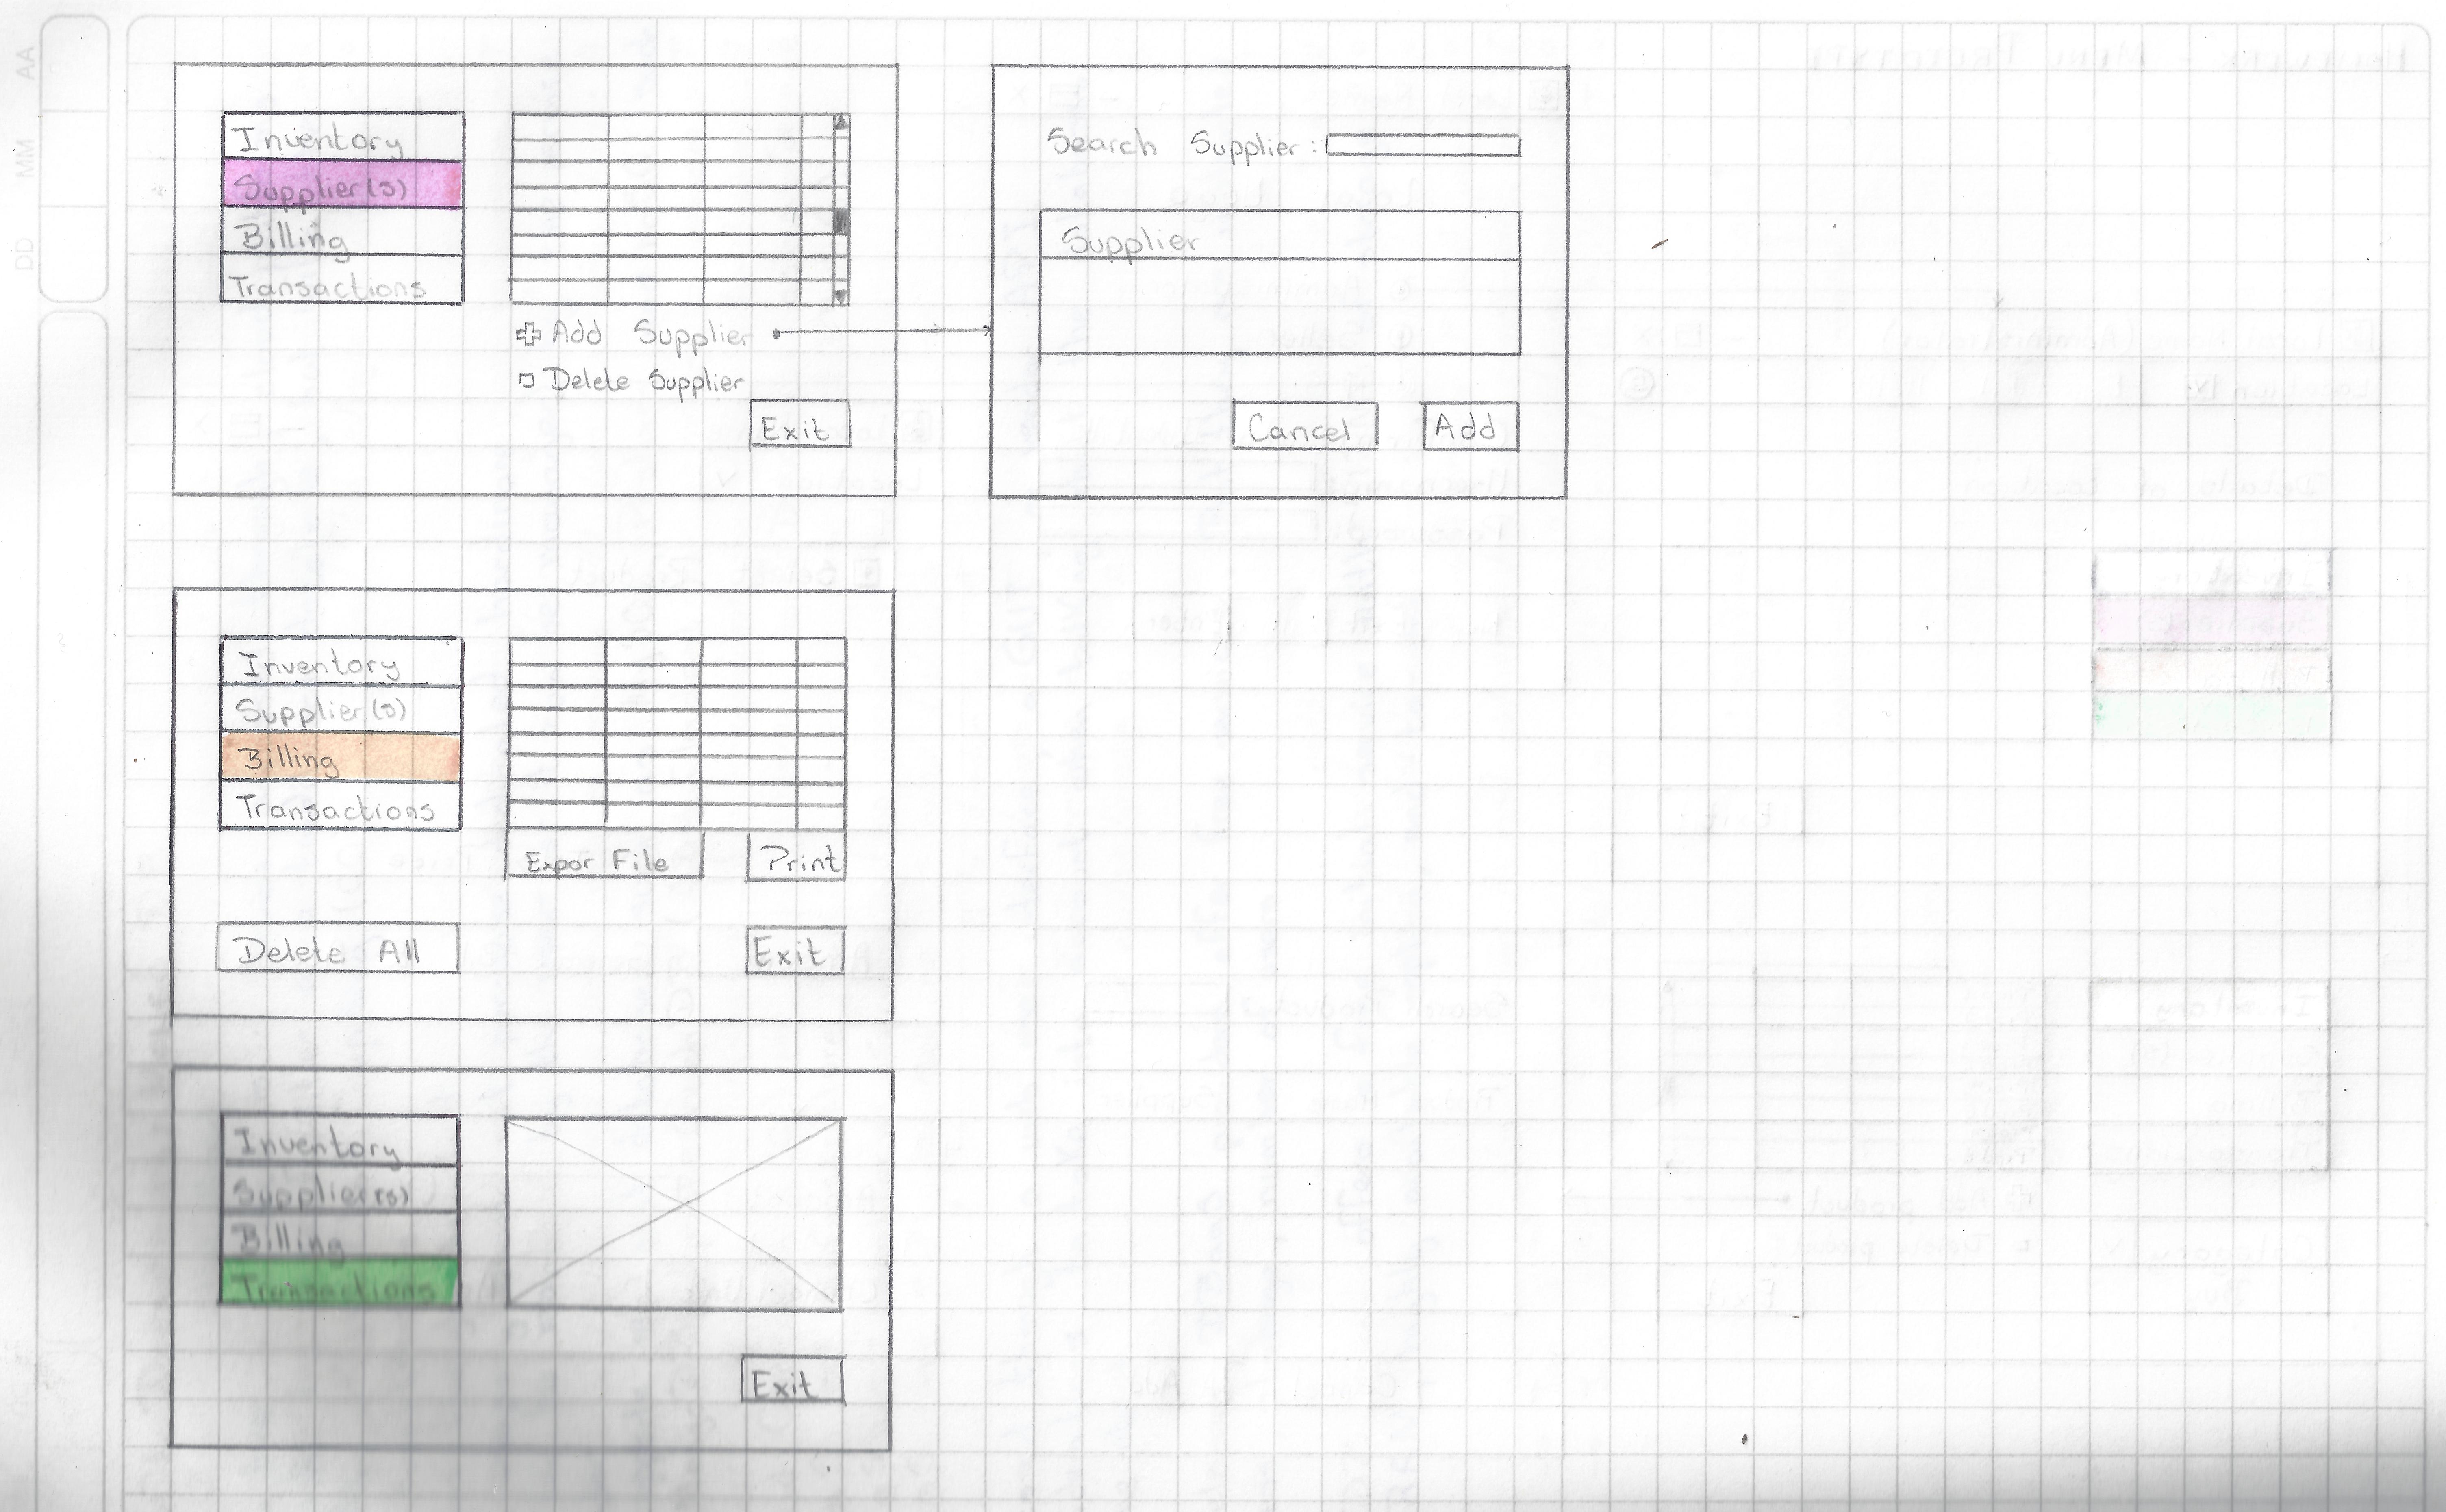 Inventory
Supplier(s)
Billing
Transactions
Add Supplier
Delete Supplier
Exit
Search Supplier:
Supplier
Cancel Add
Inventory
Supplier(s)
Billing
Transactions
Expor File Print
Delete All Exit
Inventory
Supplier(s)
Billing
Transactions
Exit
AA
MM
DD